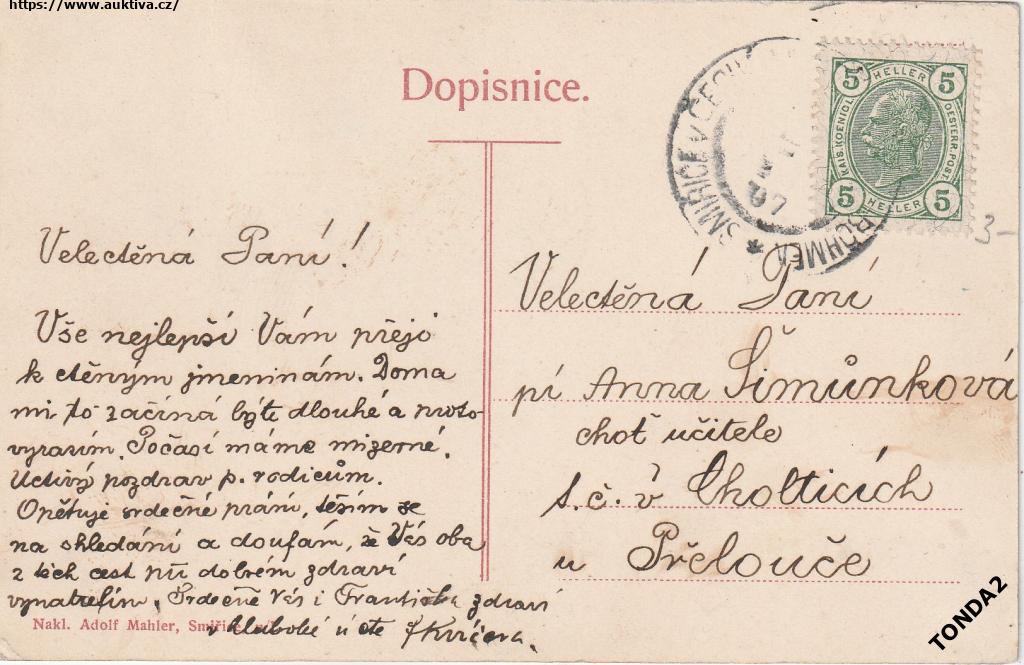 https://www.auktiva.cz/
Dopisnice.
SMIŘICE V ČECHÁCH
BÖHMEN
07
5 HELLER 5
KAIS. KOENIGL.
OESTERR. POST.
5 HELLER 5
3-
Velectěná Paní!
Vše nejlepší Vám přeji
k ctěným jmeninám. Doma
mi to začíná býti dlouhé a proto
vyrazím. Počasí máme mizerné.
Uctivý pozdrav p. rodičům.
Opětuje srdečné přání, těším se
na shledání a doufám, že Vás oba
z těch cest při dobrém zdraví
Srdečně Vás i Františka zdraví
v hluboké úctě
Velectěná Paní
pí Anna Šimůnková
choť učitele
t. č. v Cholticích
u Přelouče
Nakl. Adolf Mahler, Smiřice
TONDA2